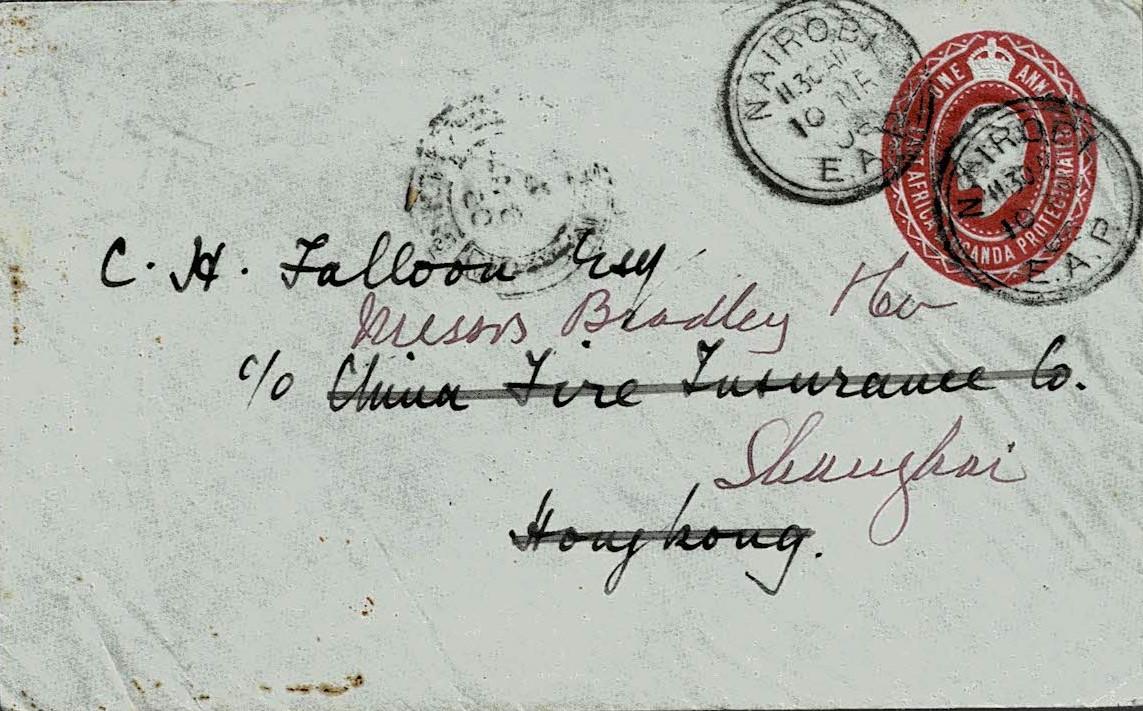 NAIROBI
11.30 AM
10 MR
E.A.P.
ONE ANNA
EAST AFRICA & UGANDA PROTECTORATES
NAIROBI
11.30 A
10
E.A.P.
C. H. Falloon Esq
Messrs Bradley & Co
c/o China Fire Insurance Co.
Shanghai
Hongkong.